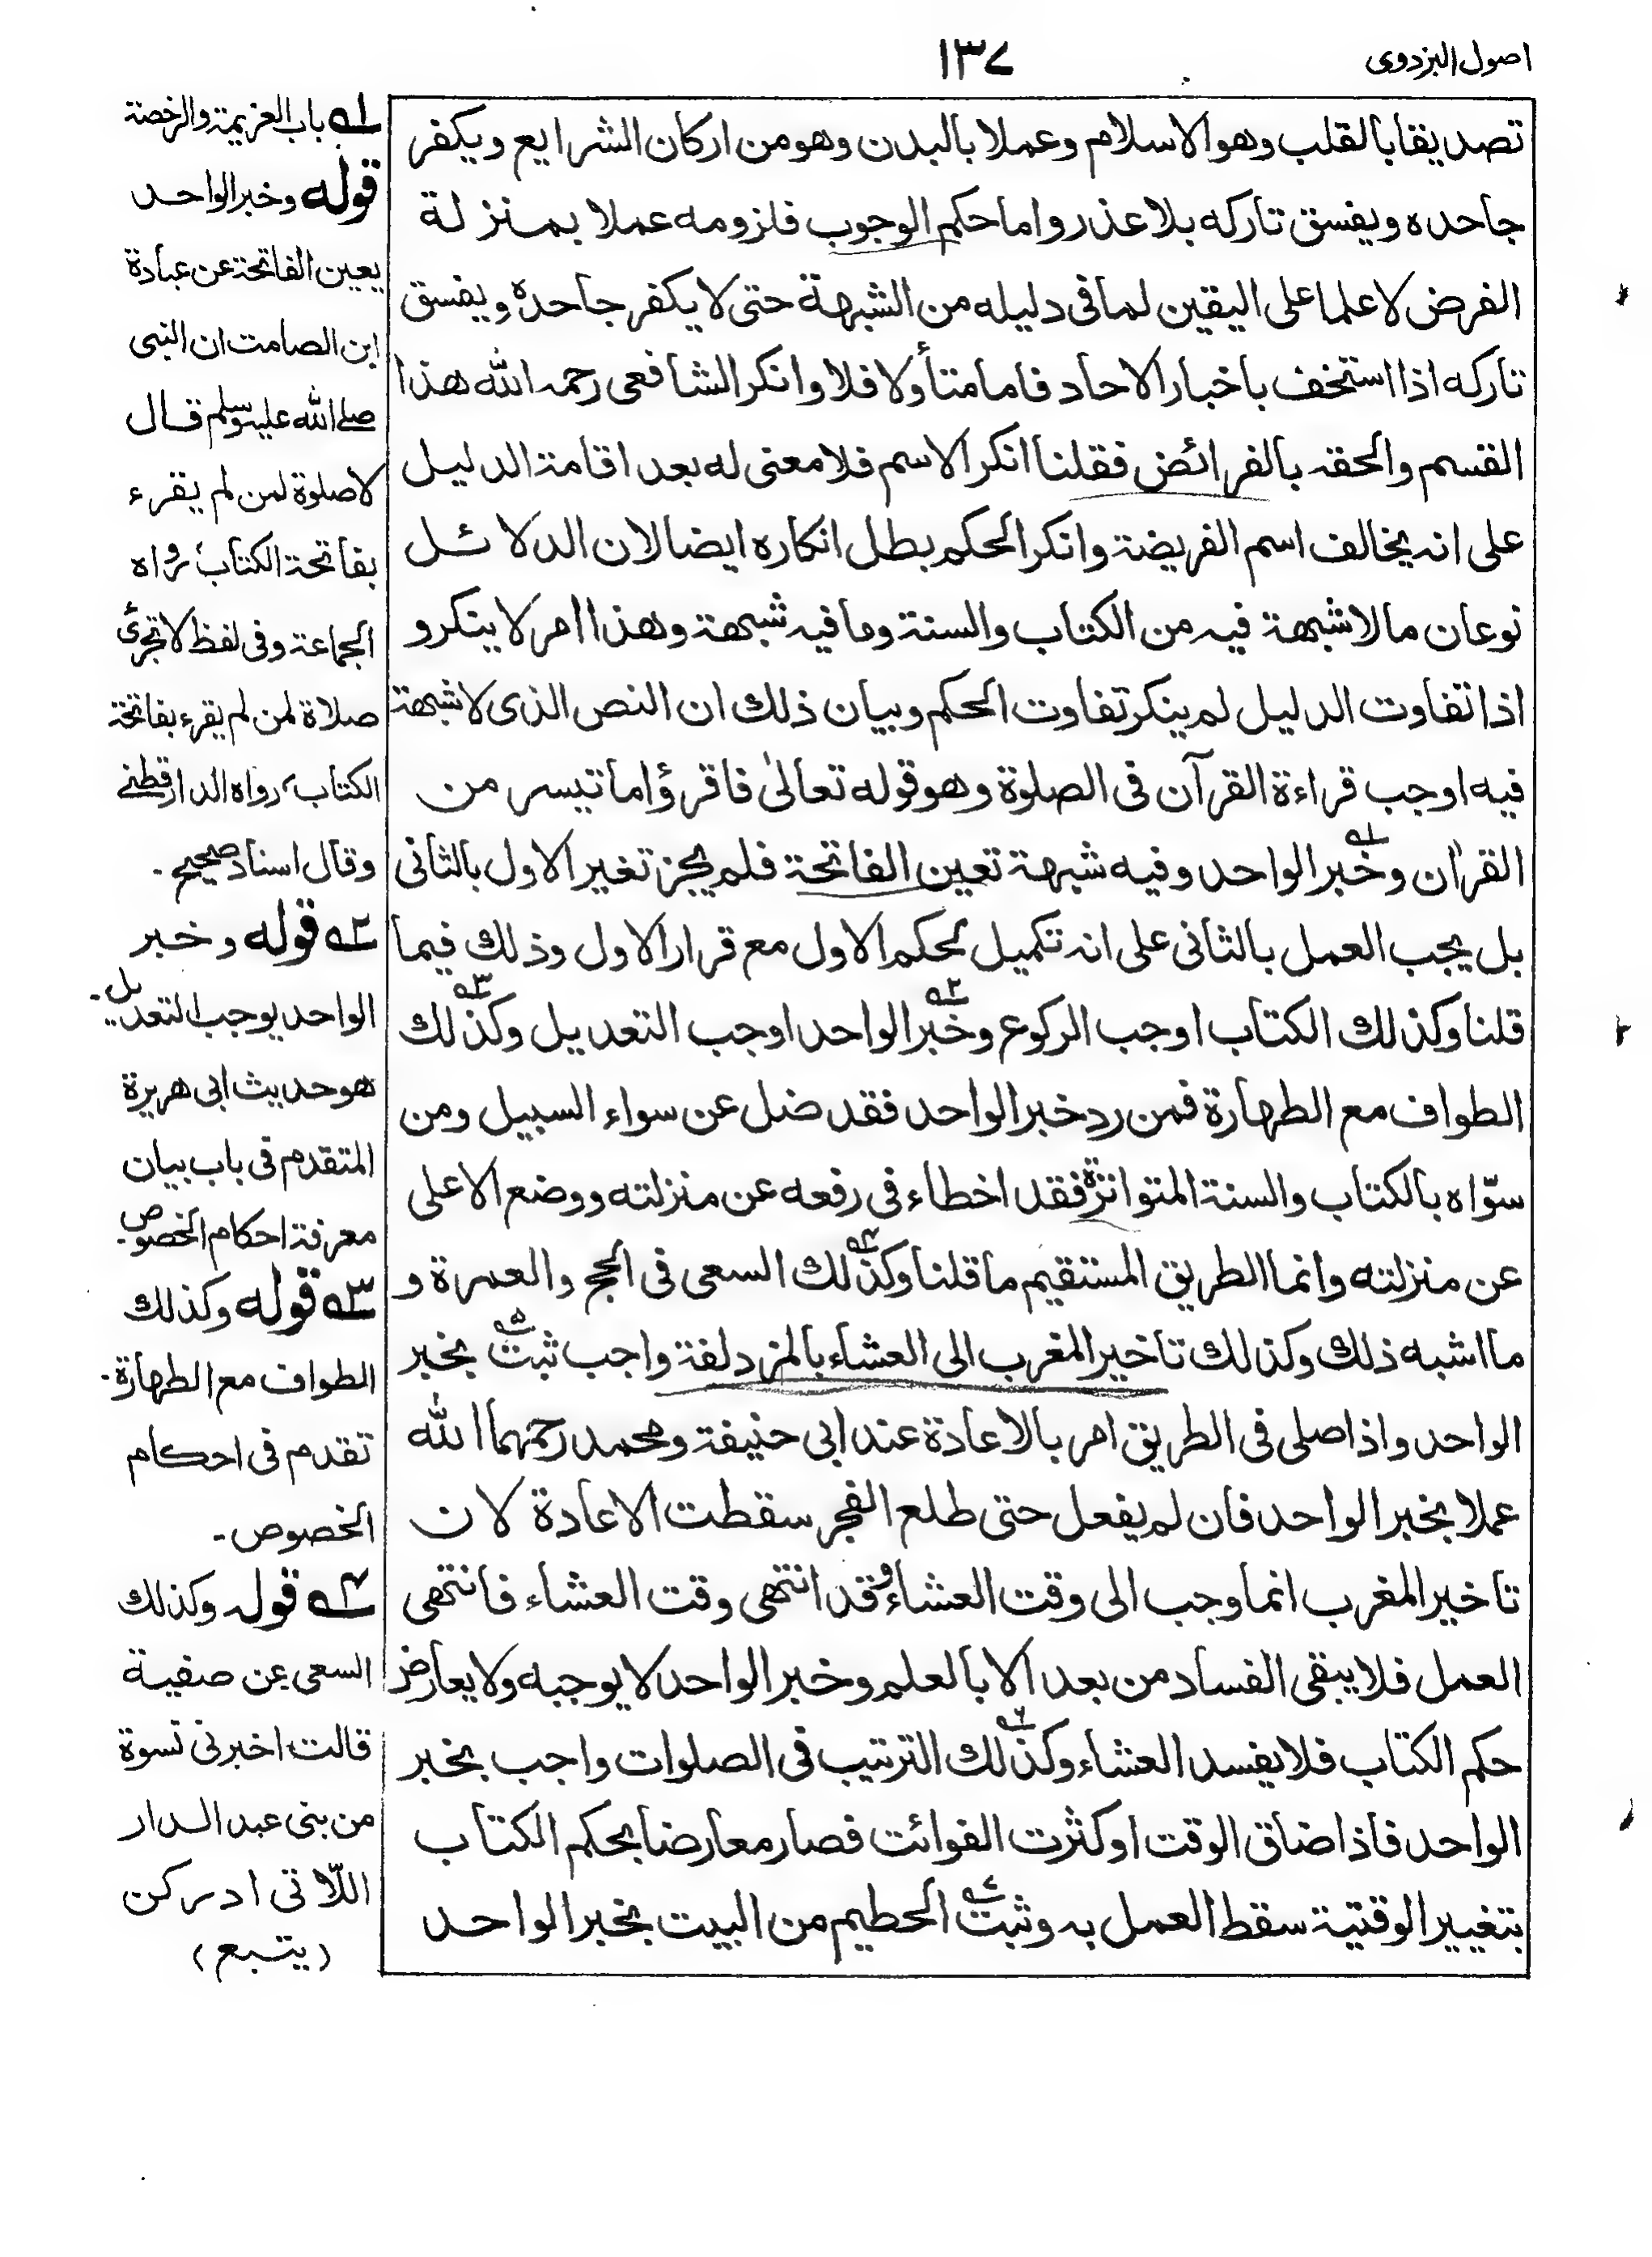 اصول البزدوى
١٣٧
تصديقا بالقلب وهو الاسلام وعملا بالبدن وهو من اركان الشرايع ويكفر
جاحده ويفسق تاركه بلا عذر واما حكم الوجوب فلزومه عملا بمنزلة
الفرض لا علما على اليقين لما فى دليله من الشبهة حتى لا يكفر جاحده ويفسق
تاركه اذا استخف باخبار الاحاد فاما متأولا فلا وانكر الشافعى رحمه الله هذا
القسم والحقه بالفرائض فقلنا انكر الاسم فلا معنى له بعد اقامة الدليل
على انه يخالف اسم الفريضة وانكر الحكم بطل انكاره ايضا لان الدلائل
نوعان ما لا شبهة فيه من الكتاب والسنة وما فيه شبهة وهذا امر لا ينكر و
اذا تفاوت الدليل لم ينكر تفاوت الحكم وبيان ذلك ان النص الذى لا شبهة
فيه اوجب قراءة القرآن فى الصلوة وهو قوله تعالىٰ فاقرؤا ما تيسر من
القرأن وخبر الواحد وفيه شبهة تعين الفاتحة فلم يجز تغير الاول بالثانى
بل يجب العمل بالثانى على انه تكميل لحكم الاول مع قرار الاول وذلك فيما
قلنا وكذلك الكتاب اوجب الركوع وخبر الواحد اوجب التعديل وكذلك
الطواف مع الطهارة فمن رد خبر الواحد فقد ضل عن سواء السبيل ومن
سوّاه بالكتاب والسنة المتواترة فقد اخطاء فى رفعه عن منزلته ووضع الاعلى
عن منزلته وانما الطريق المستقيم ما قلنا وكذلك السعى فى الحج والعمرة و
ما اشبه ذلك وكذلك تاخير المغرب الى العشاء بالمزدلفة واجب ثبت بخبر
الواحد واذا صلى فى الطريق امر بالاعادة عند ابى حنيفة ومحمد رحمهما الله
عملا بخبر الواحد فان لم يفعل حتى طلع الفجر سقطت الاعادة لان
تاخير المغرب انما وجب الى وقت العشاء وقد انتهى وقت العشاء فانتهى
العمل فلا يبقى الفساد من بعد الا بالعلم وخبر الواحد لا يوجبه ولا يعارض
حكم الكتاب فلا يفسد العشاء وكذلك الترتيب فى الصلوات واجب بخبر
الواحد فاذا ضاق الوقت او كثرت الفوائت فصار معارضا بحكم الكتاب
بتغيير الوقتية سقط العمل به وثبت الحطيم من البيت بخبر الواحد
له باب العزيمة والرخصة
قوله وخبر الواحد
يعين الفاتحة عن عبادة
ابن الصامت ان النبى
صلے الله عليه وسلم قال
لا صلوة لمن لم يقرء
بفاتحة الكتاب رواه
الجماعة وفى لفظ لا تجزئ
صلاة لمن لم يقرء بفاتحة
الكتاب، رواه الدارقطنے
وقال اسناد صحيح -
٢ه قوله وخبر
الواحد يوجب التعديل -
هو حديث ابى هريرة
المتقدم فى باب بيان
معرفة احكام الخصوص -
٣ه قوله وكذلك
الطواف مع الطهارة -
تقدم فى احكام
الخصوص -
٤ه قوله وكذلك
السعى عن صفية
قالت اخبرنى نسوة
من بنى عبد الدار
اللّاتى ادركن
(يتبع)